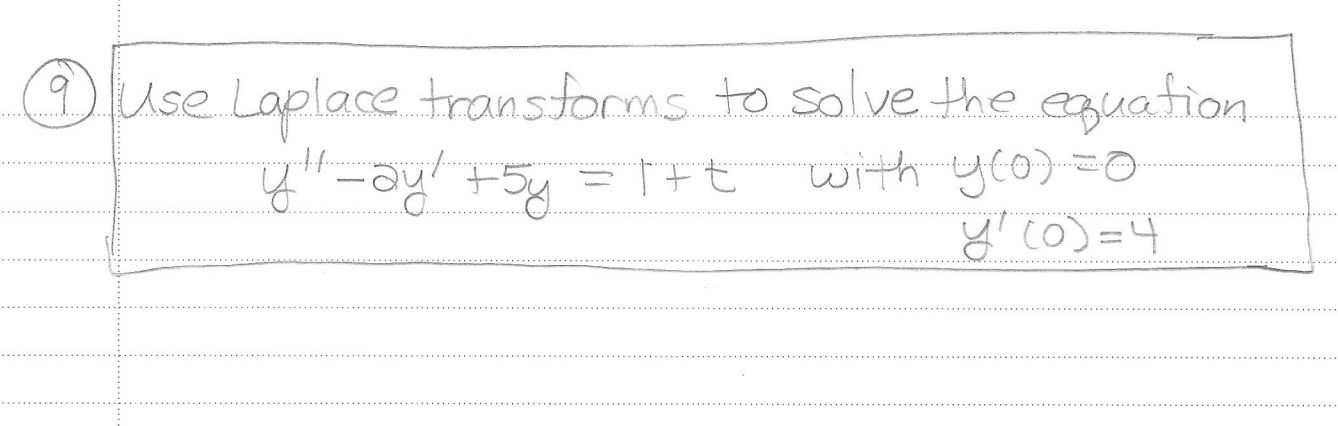 9 Use Laplace transforms to solve the equation
y'' - 2y' + 5y = 1 + t with y(0) = 0
y'(0) = 4